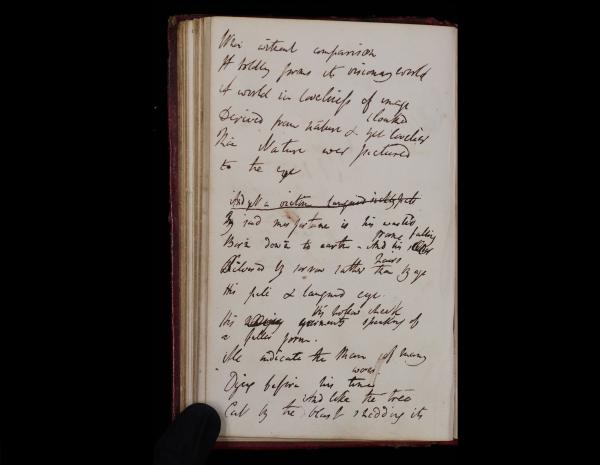 When without comparison
It boldly forms its visionary world
A world in loveliness of image
clothed
Derived from nature & yet lovelier
Than Nature ever pictured
to the eye
And yet a victim languid
By sad misfortune is his
frame falling
Born down to earth - And his
hairs
Silvered by sorrow rather than by age
His pale & languid eye.
His hollow cheek
His garments speaking of
a fallen form.
All indicate the Man of many
woes.
Dying before his time
And like the tree
Cut by the blast shedding its